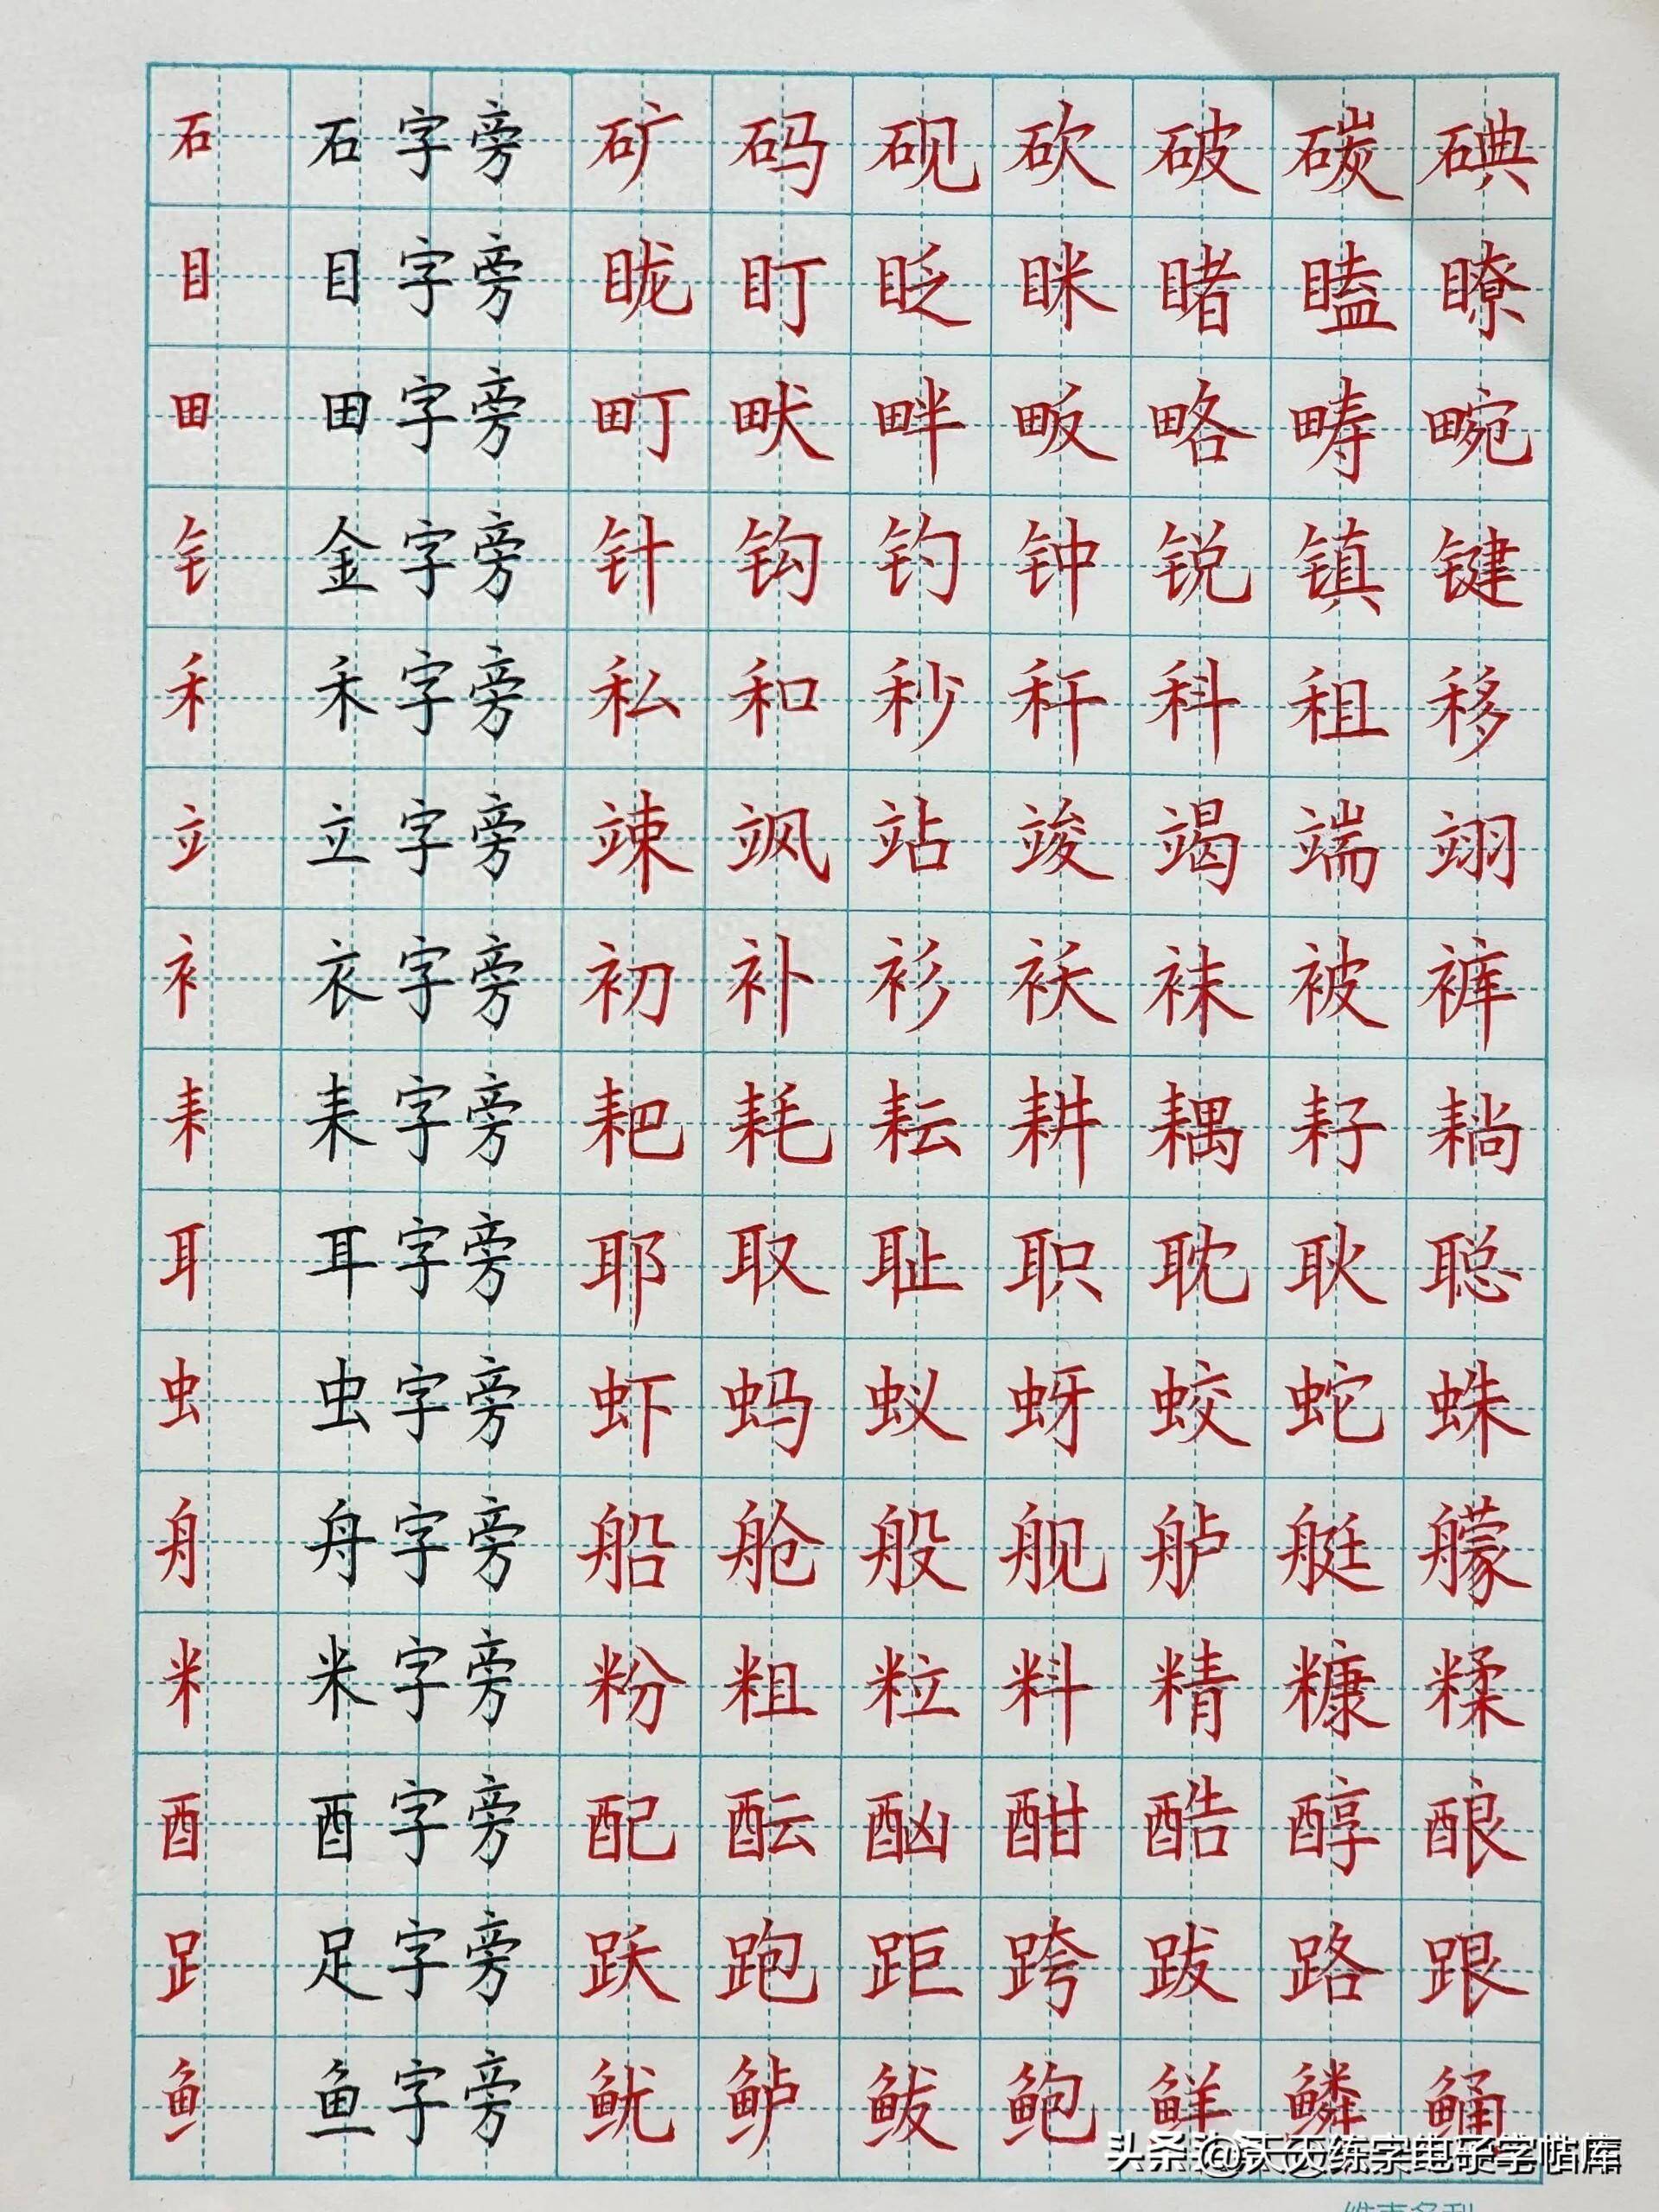 石 石字旁 矿 码 砚 砍 破 碳 碘
目 目字旁 眬 盯 眨 眯 睹 瞌 瞭
田 田字旁 町 畎 畔 畈 略 畴 畹
钅 金字旁 针 钩 钓 钟 锐 镇 键
禾 禾字旁 私 和 秒 秆 科 租 移
立 立字旁 竦 飒 站 竣 竭 端 翊
衤 衣字旁 初 补 衫 袄 袜 被 裤
耒 耒字旁 耙 耗 耘 耕 耦 耔 耥
耳 耳字旁 耶 取 耻 职 耽 耿 聪
虫 虫字旁 虾 蚂 蚁 蚜 蛟 蛇 蛛
舟 舟字旁 船 舱 般 舰 舻 艇 艨
米 米字旁 粉 粗 粒 料 精 糠 糅
酉 酉字旁 配 酝 酗 酣 酷 醇 酿
𧾷 足字旁 跃 跑 距 跨 跋 路 跟
鱼 鱼字旁 鱿 鲈 鲅 鲍 鲜 鳞 鲬
头条@天天练字电子字帖库